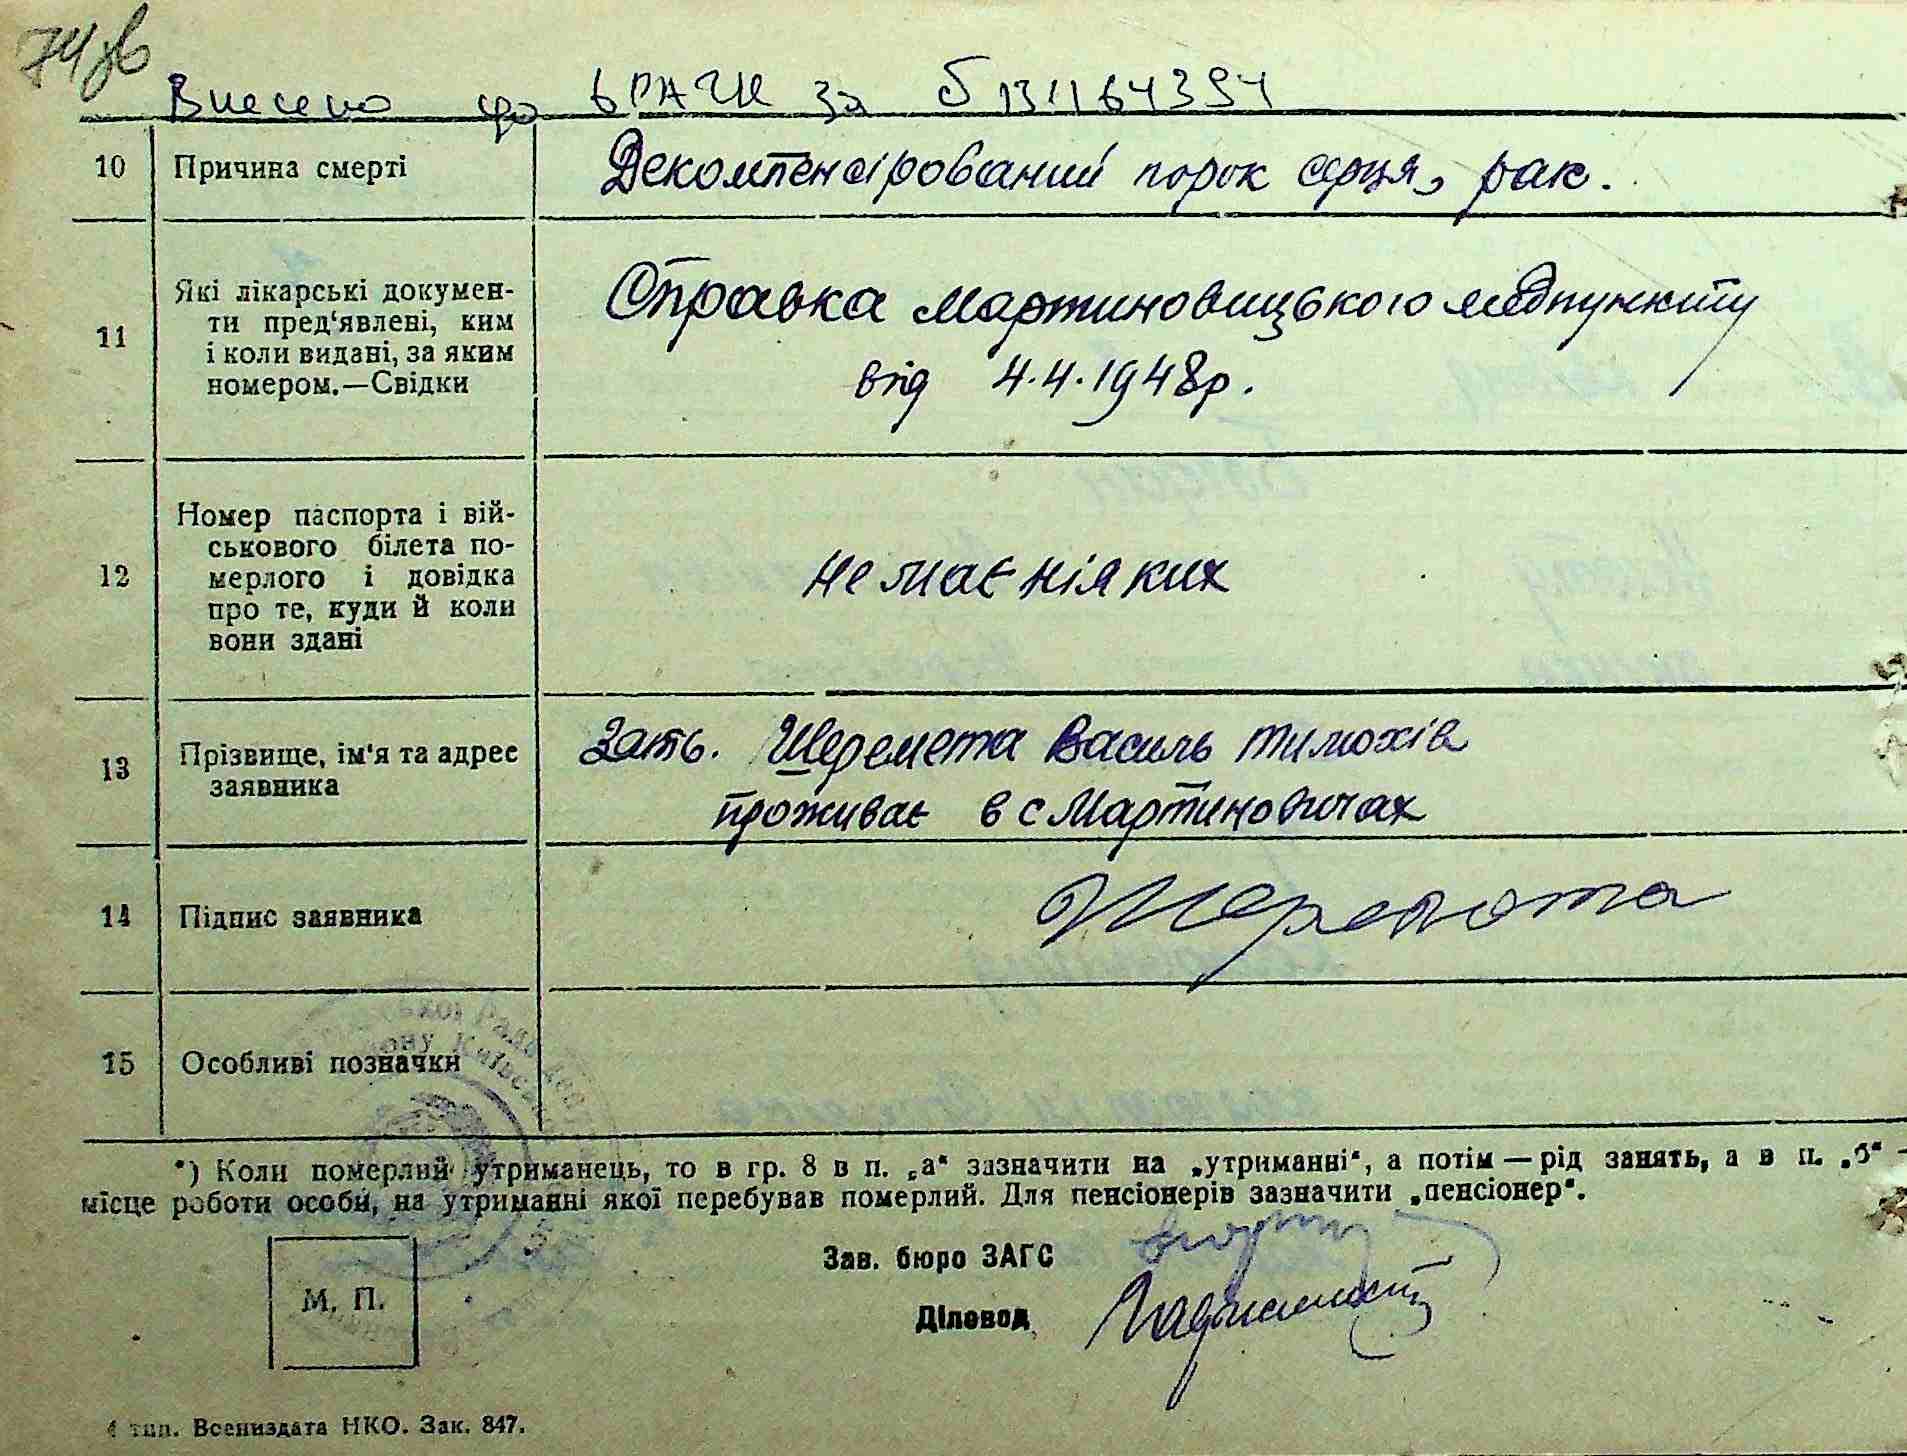 74зв
Внесено до ДРАЦС за
10 Причина смерті Декомпенсірований порок серця, рак.
11 Які лікарські докумен-
ти пред'явлені, ким
і коли видані, за яким
номером.—Свідки
Справка Мартиновицького медпункту
від 4.4.1948р.
12 Номер паспорта і вій-
ськового білета по-
мерлого і довідка
про те, куди й коли
вони здані
немає ніяких
13 Прізвище, ім'я та адрес
заявника
Зать. Шеремета Василь Тимохів
проживає в с Мартиновичах
14 Підпис заявника Шеремета
15 Особливі позначки
*) Коли померлий утриманець, то в гр. 8 в п. „а“ зазначити на „утриманні“, а потім — рід занять, а в п. „б“ —
місце роботи особи, на утриманні якої перебував померлий. Для пенсіонерів зазначити „пенсіонер“.
Зав. бюро ЗАГС
Діловод
М. П.
4 тип. Воениздата НКО. Зак. 847.